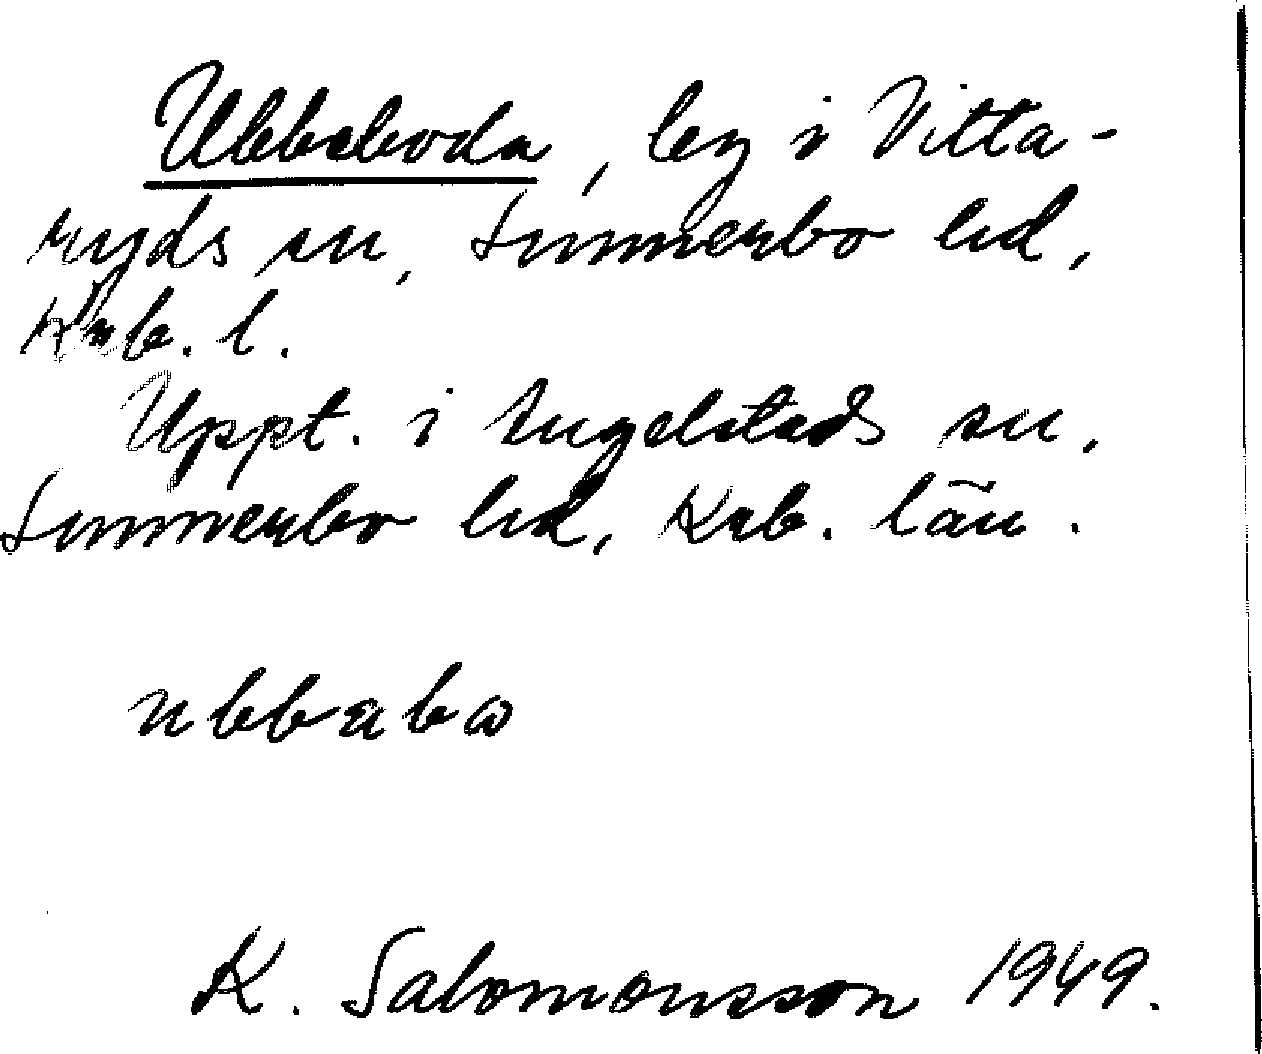 Ubbaboda, by i Vitta-
ryds sn, Sunnerbo hd,
Krb. l.
Uppt. i Angelstads sn,
Sunnerbo hd, Krb. län.
ubbabo
K. Salomonsson 1949.